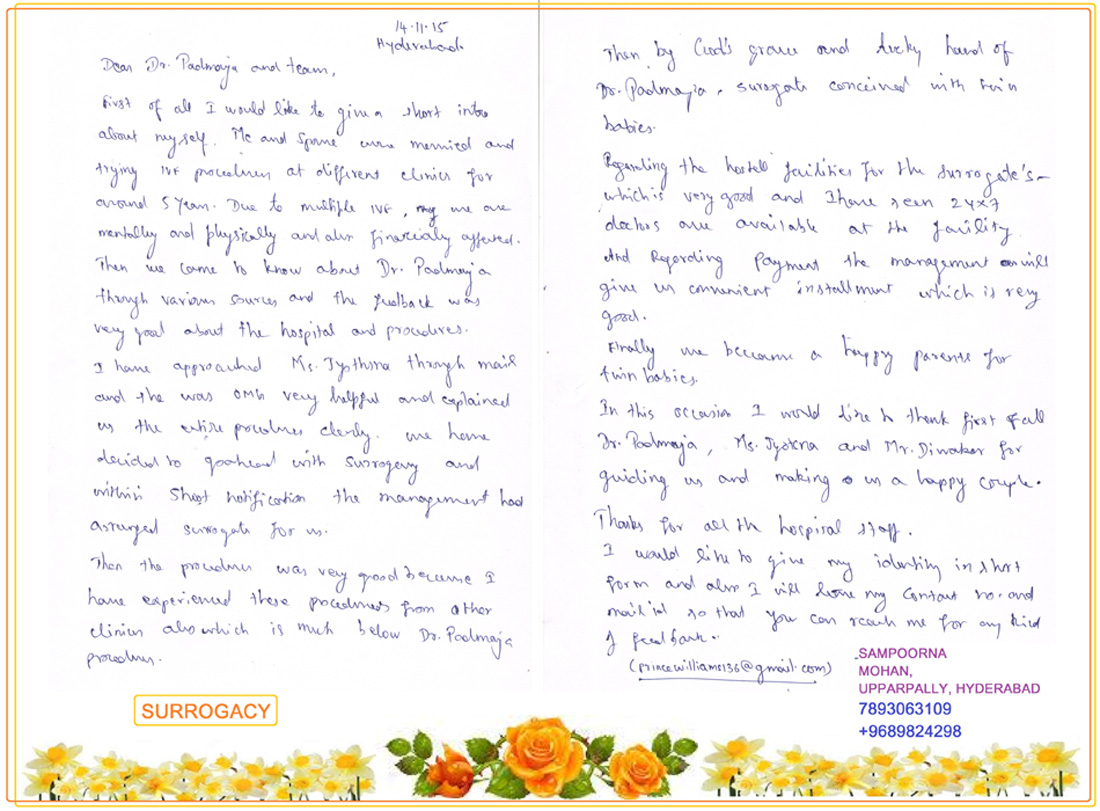 14.11.15
Hyderabad.
Dear Dr. Padmaja and team,
First of all I would like to given short intro
about myself. Me and Spouse were married and
trying IVF procedures at different clinics for
around 5 Year. Due to multiple IVF, we are
mentally and physically and also financialy affected.
Then we came to know about Dr. Padmaja
through various sources and the feedback was
very good about the hospital and procedures.
I have approached Ms. Jyothsna through mail
and she was very helpful and explained
us the entire procedures clearly. We have
decided to goahead with surrogacy and
within short notification the management had
arranged surrogate for us.
Then the procedures was very good because I
have experienced these procedures from other
clinics also which is much below Dr. Padmaja
procedures.
Then by God's grace and lucky hand of
Dr. Padmaja, surogate conceived with twin
babies.
Regarding the hostel facilities for the surrogate's-
which is very good and I have seen 24x7
doctors are available at the facility.
And Regarding Payment the management will
give us convenient installment which is very
good.
Finally we became a happy parents for
twin babies.
In this occasion I would like to thank first of all
Dr. Padmaja, Ms. Jyotsna and Mr. Diwakar for
guiding us and making us a happy couple.
Thanks for all the hospital staff.
I would like to give my identity in short
form and also I will leave my contact no. and
mail id so that you can reach me for any kind
of feedback.
(princewilliams136@gmail.com)
SAMPOORNA
MOHAN,
UPPARPALLY, HYDERABAD
7893063109
+9689824298
SURROGACY